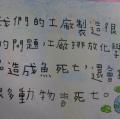 我們的工廠製造很
的問題,工廠排放化學
造成魚死亡,還會
多動物害死。